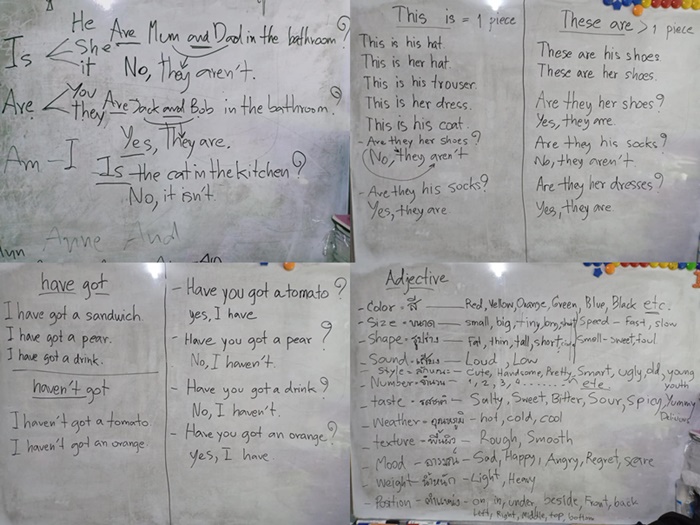 He
Is She
it
Are Mum and Dad in the bathroom?
No, they aren't.
Are You
they
Are Jack and Bob in the bathroom?
Yes, They are.
Am - I
Is the cat in the kitchen?
No, it isn't.
Anne And
This is = 1 piece
This is his hat.
This is her hat.
This is his trouser.
This is her dress.
This is his coat.
- Are they her shoes?
No, they aren't
- Are they his socks?
Yes, they are
These are > 1 piece
These are his shoes.
These are her shoes.
Are they her shoes?
Yes, they are.
Are they his socks?
No, they aren't.
Are they her dresses?
Yes, they are.
have got
I have got a sandwich.
I have got a pear.
I have got a drink.
haven't got
I haven't got a tomato
I haven't got an orange
- Have you got a tomato?
yes, I have
- Have you got a pear?
No, I haven't.
- Have you got a drink?
No, I haven't.
- Have you got an orange?
yes, I have
Adjective
- Color - สี — Red, Yellow, Orange, Green, Blue, Black etc.
- Size - ขนาด — small, big, tiny, Speed - Fast, slow
- Shape - รูปร่าง — Fat, thin, tall, short, Smell - Sweet, foul
- Sound - เสียง — Loud, Low
Style - ลักษณะ - Cute, Handsome, Pretty, Smart, ugly, old, young
- Number - จำนวน - 1, 2, 3, 4 ...... etc. youth
- taste - รสชาติ - Salty, Sweet, Bitter, Sour, Spicy, Yummy
- Weather - อุณหภูมิ - hot, cold, cool
- texture - พื้นผิว - Rough, Smooth
- Mood - อารมณ์ - Sad, Happy, Angry, Regret, scare
- Weight - น้ำหนัก - Light, Heavy
- Position - ตำแหน่ง - on, in, under, beside, Front, back
Left, Right, middle, top, bottom